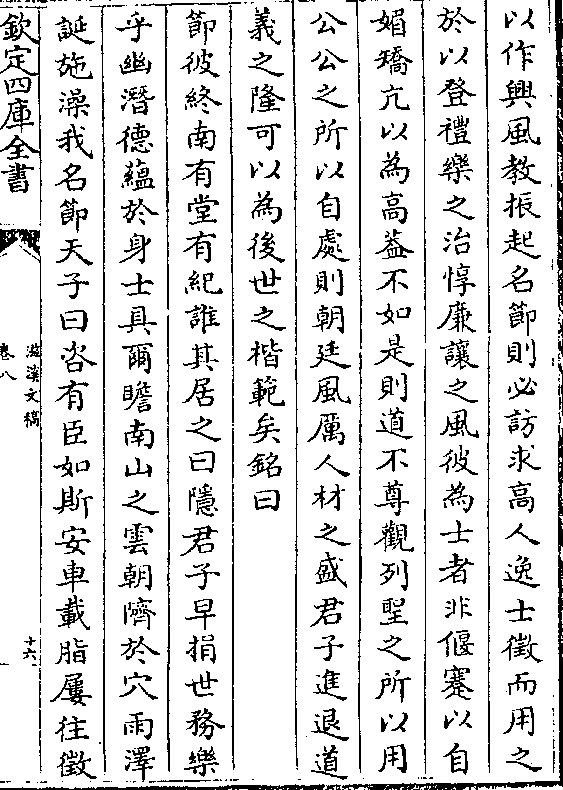 以作興風教振起名節則必訪求高人逸士徵而用之
於以登禮樂之治惇廉讓之風彼為士者非偃蹇以自
媚矯亢以為高葢不如是則道不尊觀列聖之所以用
公公之所以自處則朝廷風厲人材之盛君子進退道
義之隆可以為後世之楷範矣銘曰
節彼終南有堂有紀誰其居之曰隱君子早捐世務樂
乎幽潛德蘊於身士具爾瞻南山之雲朝隮於穴雨澤
誕施澡我名節天子曰咨有臣如斯安車載脂屢往徵
欽定四庫全書
滋溪文稿
卷八
十六